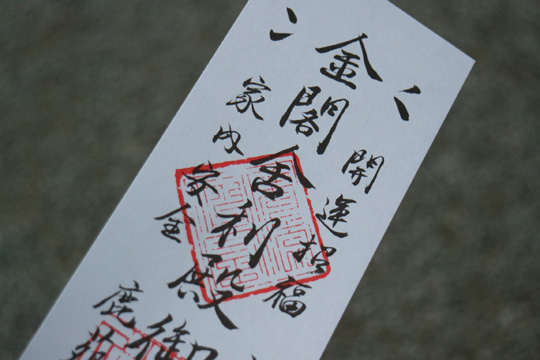 開運招福
金閣舎利殿御
家内安全
鹿苑